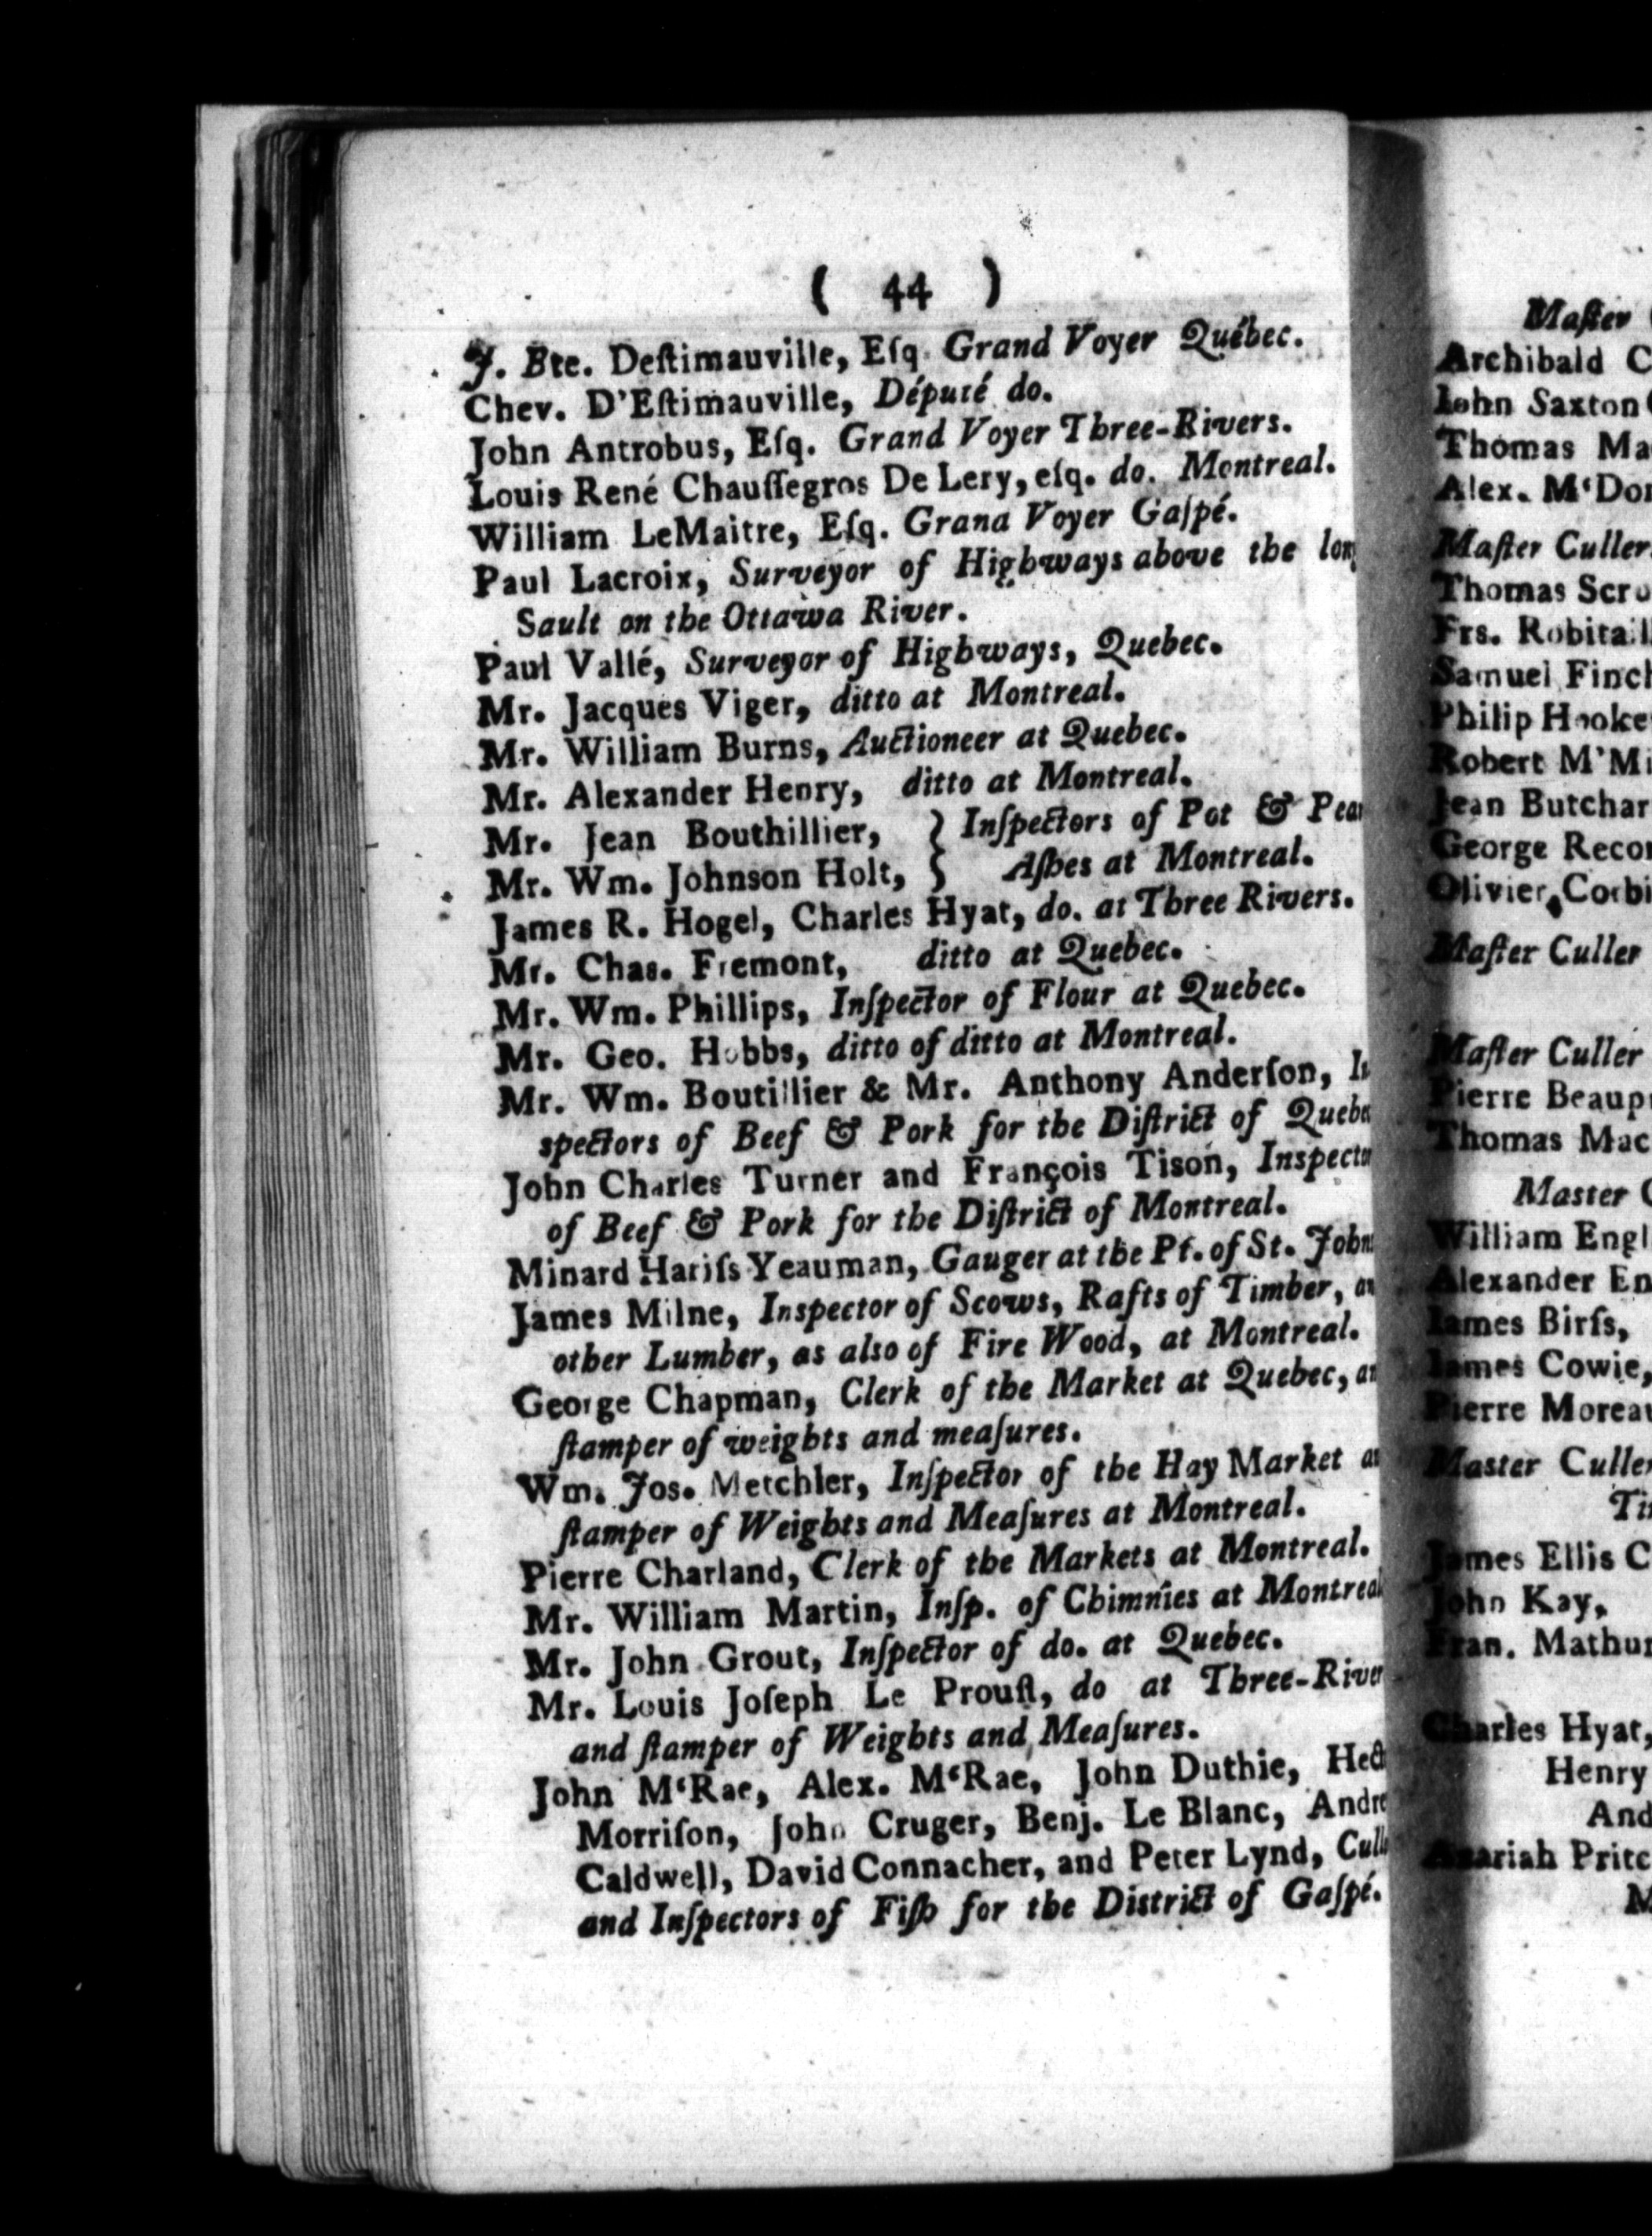 ( 44 )
J. Bte. Deſtimauville, Eſq. Grand Voyer Québec.
Chev. D'Eſtimauville, Député do.
John Antrobus, Eſq. Grand Voyer Three-Rivers.
Louis René Chauſſegros De Lery, eſq. do. Montreal.
William LeMaitre, Eſq. Grand Voyer Gaſpé.
Paul Lacroix, Surveyor of Highways above the long
Sault on the Ottawa River.
Paul Vallé, Surveyor of Highways, Quebec.
Mr. Jacques Viger, ditto at Montreal.
Mr. William Burns, Auctioneer at Quebec.
Mr. Alexander Henry, ditto at Montreal.
Mr. Jean Bouthillier, } Inſpectors of Pot & Pear
Mr. Wm. Johnson Holt, } Aſhes at Montreal.
James R. Hogel, Charles Hyat, do. at Three Rivers.
Mr. Chas. Fremont, ditto at Quebec.
Mr. Wm. Phillips, Inſpector of Flour at Quebec.
Mr. Geo. Hobbs, ditto of ditto at Montreal.
Mr. Wm. Boutillier & Mr. Anthony Anderſon, In
spectors of Beef & Pork for the Diſtrict of Quebec
John Charles Turner and François Tison, Inspector
of Beef & Pork for the Diſtrict of Montreal.
Minard Hariſs Yeauman, Gauger at the Pt. of St. Johns
James Milne, Inspector of Scows, Rafts of Timber, an
other Lumber, as also of Fire Wood, at Montreal.
George Chapman, Clerk of the Market at Quebec, an
ſtamper of weights and meaſures.
Wm. Jos. Metchler, Inſpector of the Hay Market an
ſtamper of Weights and Meaſures at Montreal.
Pierre Charland, Clerk of the Markets at Montreal.
Mr. William Martin, Inſp. of Chimnies at Montreal
Mr. John Grout, Inſpector of do. at Quebec.
Mr. Louis Joſeph Le Prouſt, do at Three-River
and ſtamper of Weights and Meaſures.
John M'Rae, Alex. M'Rae, John Duthie, Hect
Morriſon, John Cruger, Benj. Le Blanc, Andre
Caldwell, David Connacher, and Peter Lynd, Culle
and Inſpectors of Fiſh for the District of Gaſpé.
Maſter
Archibald C
John Saxton
Thomas Ma
Alex. M'Don
Maſter Culler
Thomas Scro
Frs. Robitaill
Samuel Finch
Philip Hooke
Robert M'Mi
Jean Butchar
George Recor
Olivier Corbi
Maſter Culler
Maſter Culler
Pierre Beaup
Thomas Mac
Master C
William Engl
Alexander En
James Birſs,
James Cowie,
Pierre Moreau
Master Culler
Ti
James Ellis C
John Kay,
Fran. Mathur
Charles Hyat,
Henry
And
Azariah Pritc
M